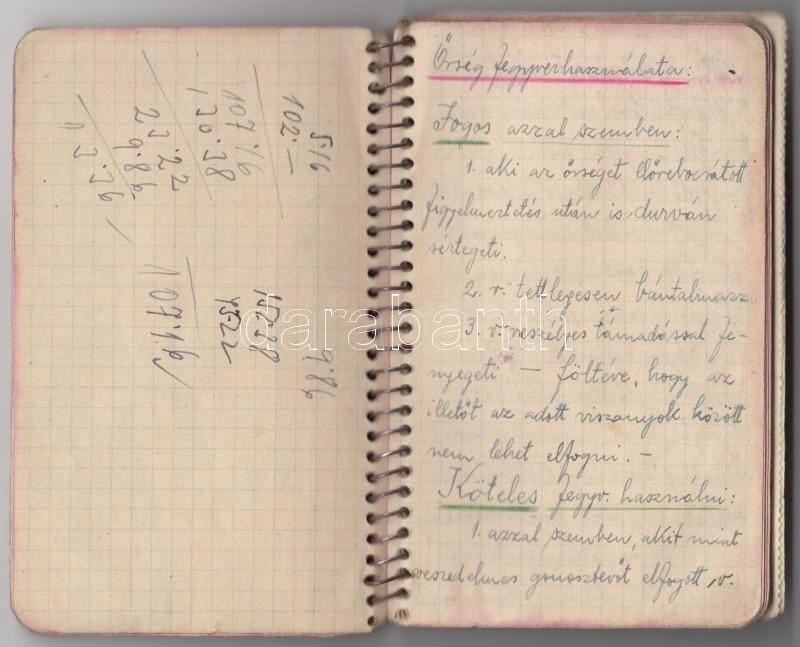 516
102·—
107·16
130·38
23·22
9·86
13·36
9·86
15238
4522
107·16
Őrség fegyverhasználata:
Jogos azzal szemben:
1. aki az őrséget előrebocsátott
figyelmeztetés után is durván
sértegeti.
2. v. tettlegesen bántalmazza
3. v. veszélyes támadással fe-
nyegeti — föltéve, hogy az
illetőt az adott viszonyok között
nem lehet elfogni. —
Köteles fegyv. használni:
1. azzal szemben, akit mint
veszedelmes gonosztevőt elfogott, v.
darabanth